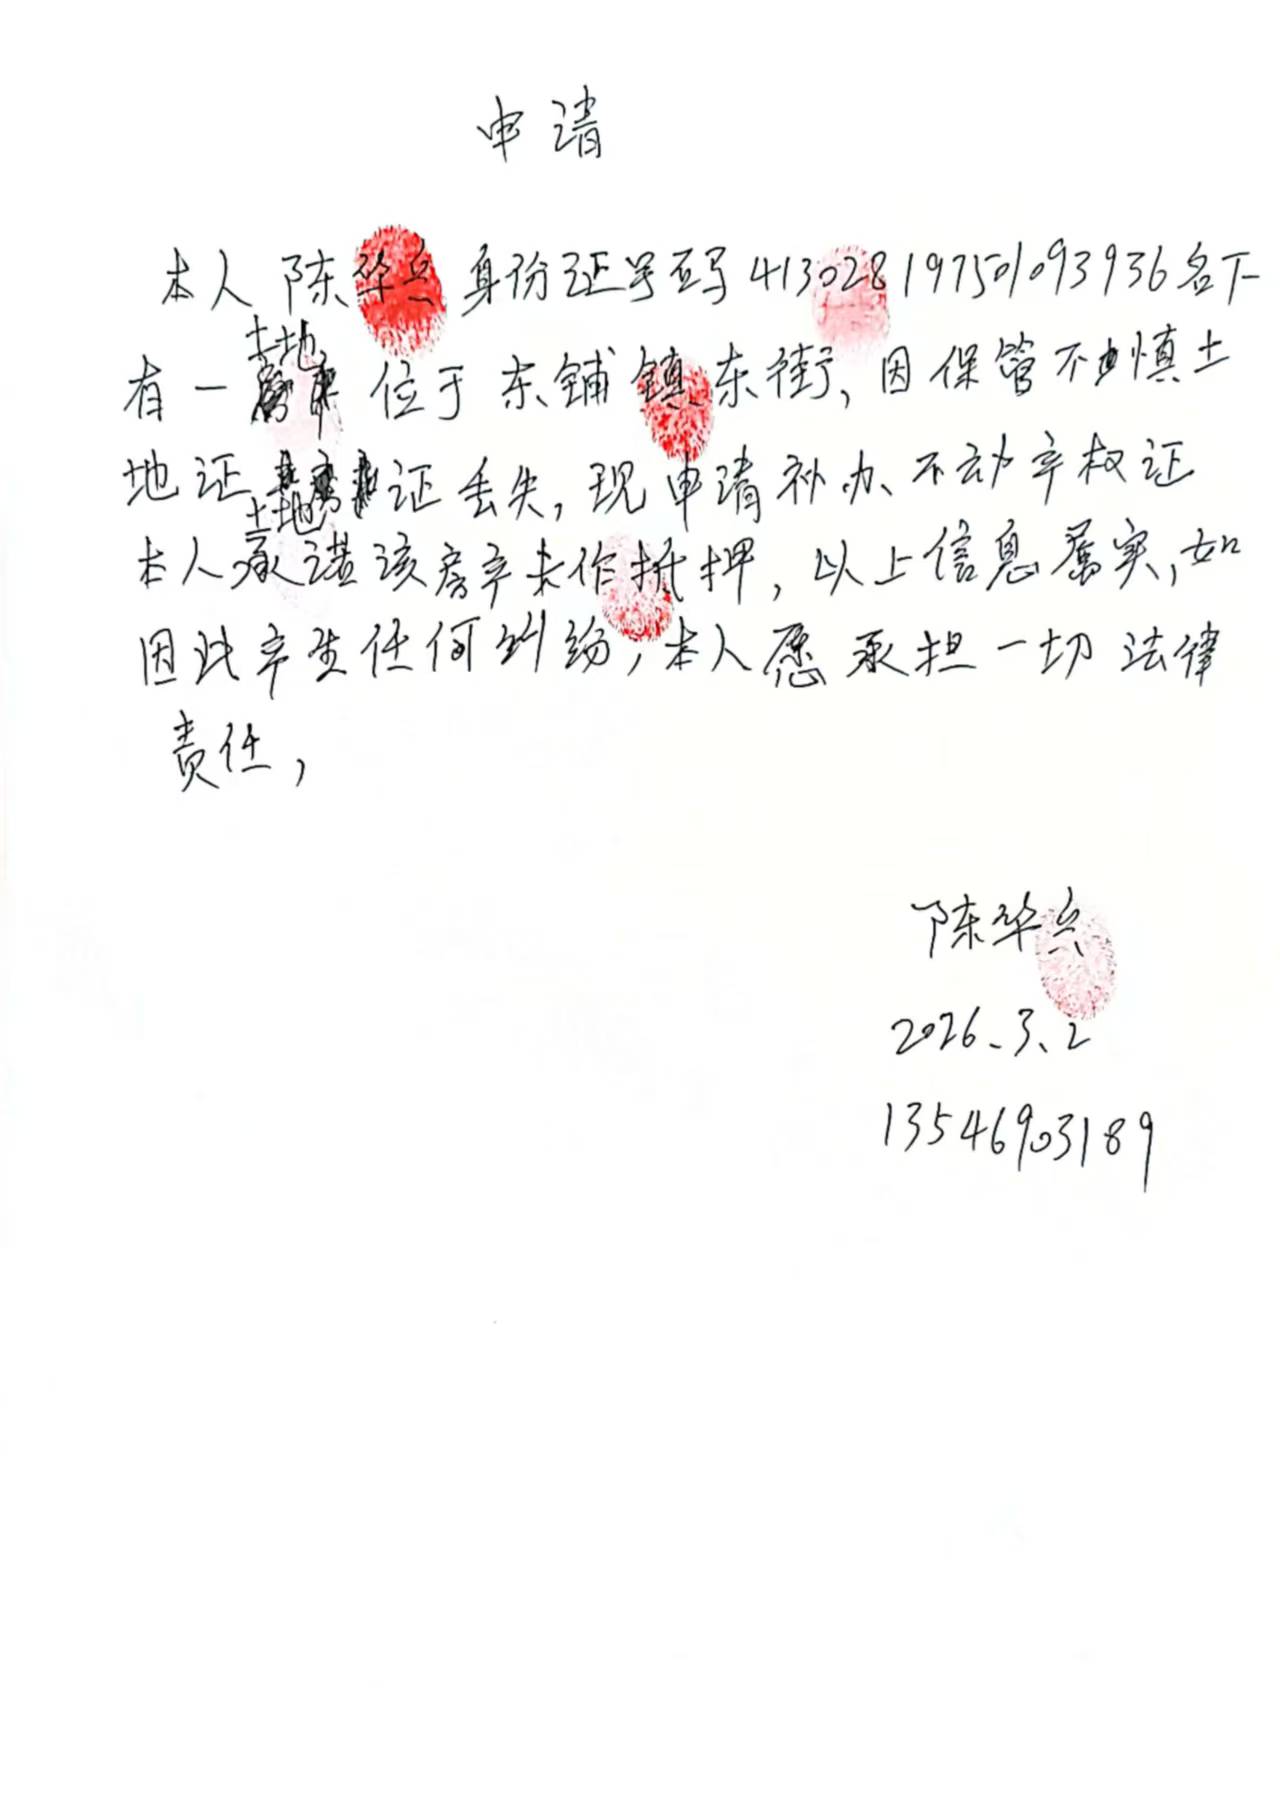 申请
本人陈华兵身份证号码413028197501093936名下
有一土地位于东铺镇东街,因保管不慎土
地证土地证丢失,现申请补办不动产权证
本人承诺该房产未作抵押,以上信息属实,如
因此产生任何纠纷,本人愿承担一切法律
责任,
陈华兵
2026.3.2
13546903189